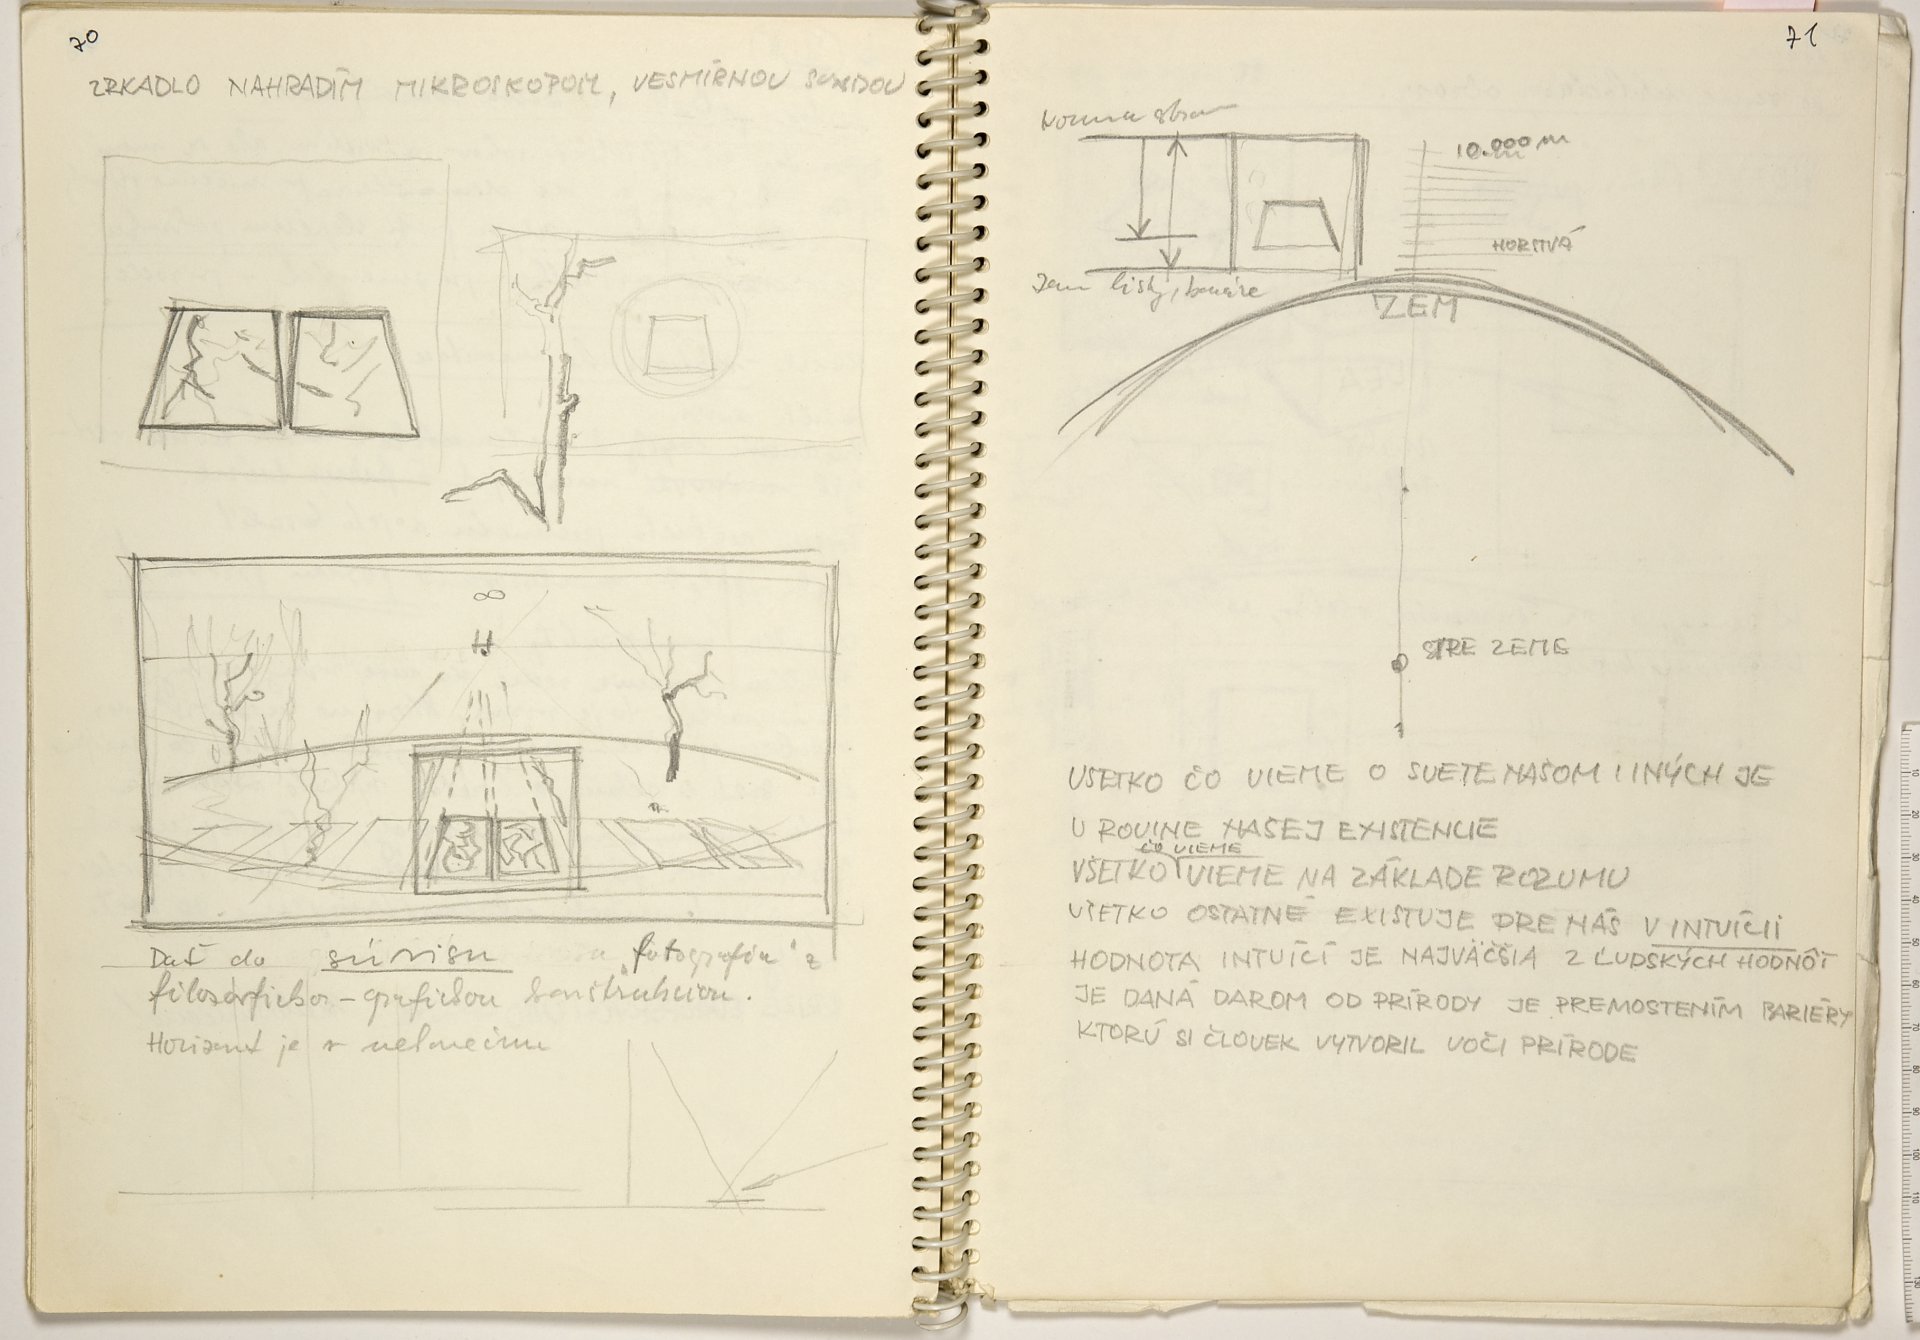 70
ZRKADLO NAHRADÍM MIKROSKOPOM, VESMÍRNOU SONDOU
∞
H
Dať do súvisu fotografiu z
filozoficko - grafickou konštrukciou.
Horizont je v nekonečnu
71
10.000 m
HORSTVÁ
Zem listy,
ZEM
STRE ZEME
VŠETKO ČO VIEME O SVETE NAŠOM I INÝCH JE
V ROVINE NAŠEJ EXISTENCIE
ČO VIEME
VŠETKO VIEME NA ZÁKLADE ROZUMU
VŠETKO OSTATNÉ EXISTUJE PRE NÁS V INTUÍCII
HODNOTA INTUÍCÍ JE NAJVÄČŠIA Z ĽUDSKÝCH HODNÔT
JE DANÁ DAROM OD PRÍRODY JE PREMOSTENÍM BARIÉRY
KTORÚ SI ČLOVEK VYTVORIL VOČI PRÍRODE